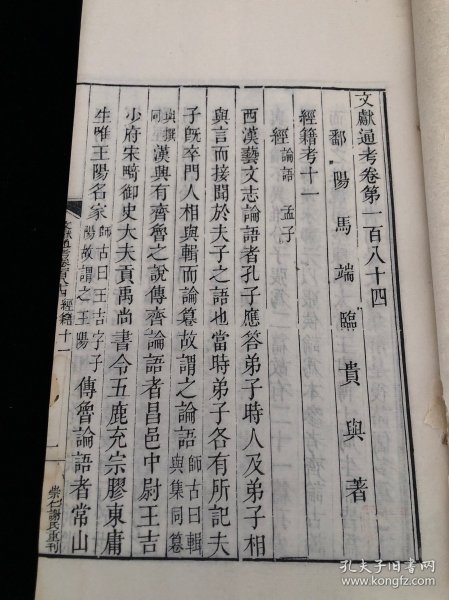 文獻通考卷第一百八十四
鄱陽馬端臨貴與著
經籍考十一
經 論語 孟子
西漢藝文志論語者孔子應答弟子時人及弟子相
與言而接聞於夫子之語也當時弟子各有所記夫
子既卒門人相與輯而論篹故謂之論語 師古曰輯與集同篹
與撰同 漢興有齊魯之說傳齊論語者昌邑中尉王吉
少府宋畸御史大夫貢禹尚書令五鹿充宗膠東庸
生唯王陽名家 師古曰王吉字子陽故謂之王陽 傳魯論語者常山
文獻通考卷一百八十四 經籍十一
一
崇仁謝氏重刊
孔夫子旧书网
kongfz.com